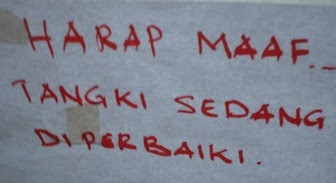 HARAP MAAF..
TANGKI SEDANG
DIPERBAIKI.